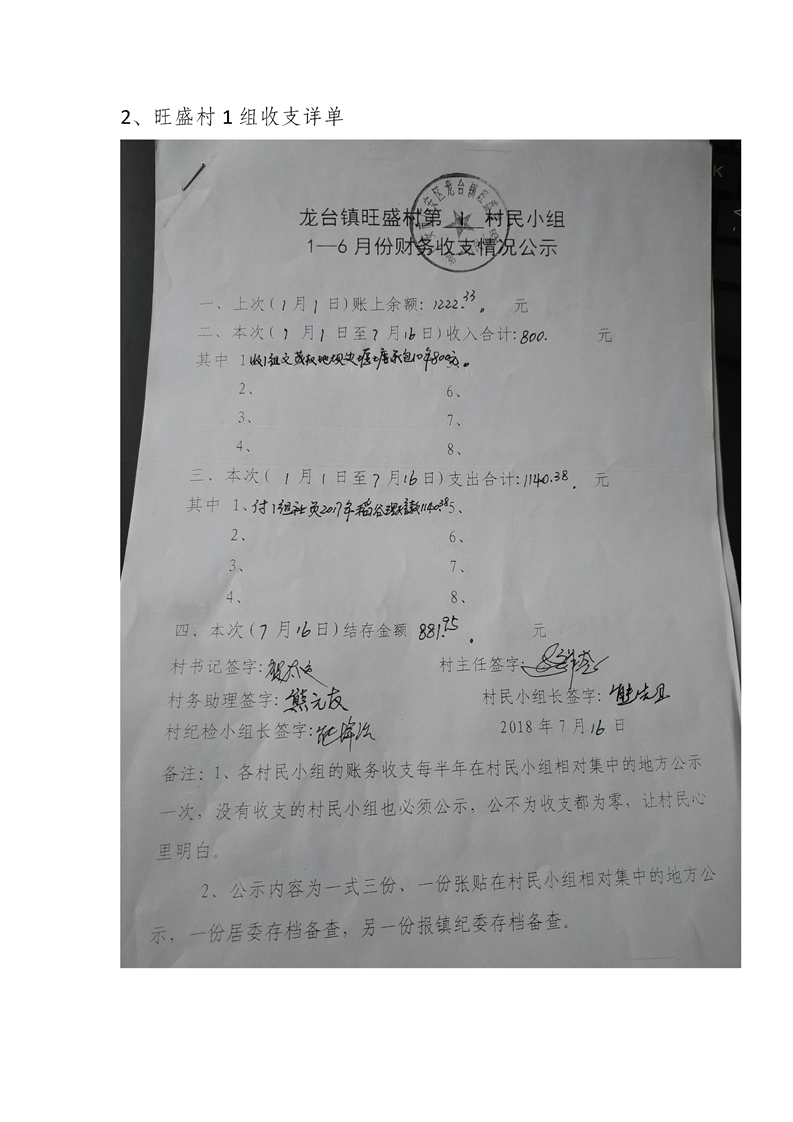 2、旺盛村1组收支详单
龙台镇旺盛村第 1 村民小组
1—6月份财务收支情况公示
一、上次(1月1日)账上余额:1222.33。 元
二、本次(1月1日至7月16日)收入合计:800. 元
其中 1 收1组 承包10年800元。
2、 6、
3、 7、
4、 8、
三、本次(1月1日至7月16日)支出合计:1140.38。 元
其中 1、付1组社员2017年稻谷 款1140.38 5、
2、 6、
3、 7、
4、 8、
四、本次(7月16日)结存金额 881.95。 元
村书记签字: 村主任签字:
村务助理签字:熊元友 村民小组长签字:
村纪检小组长签字: 2018年7月16日
备注:1、各村民小组的账务收支每半年在村民小组相对集中的地方公示
一次,没有收支的村民小组也必须公示,公不为收支都为零,让村民心
里明白。
2、公示内容为一式三份、一份张贴在村民小组相对集中的地方公
示,一份居委存档备查,另一份报镇纪委存档备查。